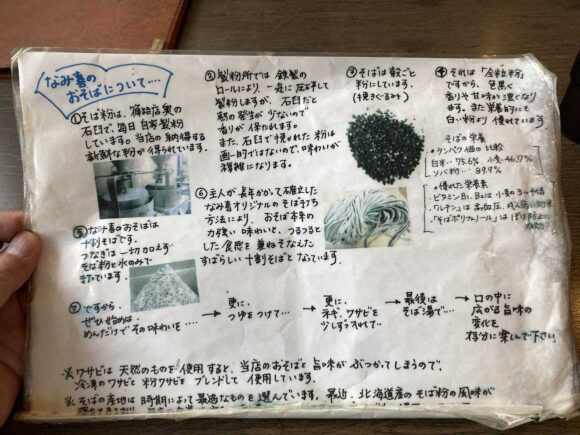 なみ喜の
おそばについて…
①そば粉は、篠路店奥の
石臼で、毎日自家製粉
しています。当店の納得する
新鮮な粉が得られています。
②製粉所では鉄製の
ロールにより、一度に圧平して
製粉しますが、石臼だと
熱の発生が少ないので
香りが保れます。
また、石臼で挽きれた粉は
画一的ではないので、味わいが
複雑になります。
③そばは殻ごと
粉にしています。
(挽きぐるみ)
④それは「全粒粉」
ですから、色黒く
香りや甘味が濃くなり
ます。また栄養的にも
白い粉より優れています
そばの栄養
・タンパク価の比較
白米…75.6% 小麦…46.7%
ソバ粉…89.9%
・優れた栄養素
・ビタミンB1、B2は小麦の3〜4倍
⑤なみ喜のおそばは
十割そばです。
つなぎは一切加えず
そば粉と水のみで
⑥主人が長年かけて確立した
なみ喜オリジナルのそば手打ち
方法により、おそば本来の
力強い味わいと、つるつると
した食感を兼ねそなえた
すばらしい十割そばとなっています。
⑦ですから、
ぜひ始めは
めんだけでその味わいを…
→
更に、
つゆをつけて…
→
更に、
ネギ、ワサビを
少しずつ入れて
→
最後は
そば湯で…
→
口の中に
広がる旨味の
変化を
存分に楽しんで下さい!
※ワサビは天然のものを使用すると、当店のおそばと旨味がぶつかってしまうので、
冷凍のワサビと粉ワサビをブレンドして使用しています。
※そばの産地は時期によって最適なものを選んでいます。最近、北海道産のそば粉の風味が